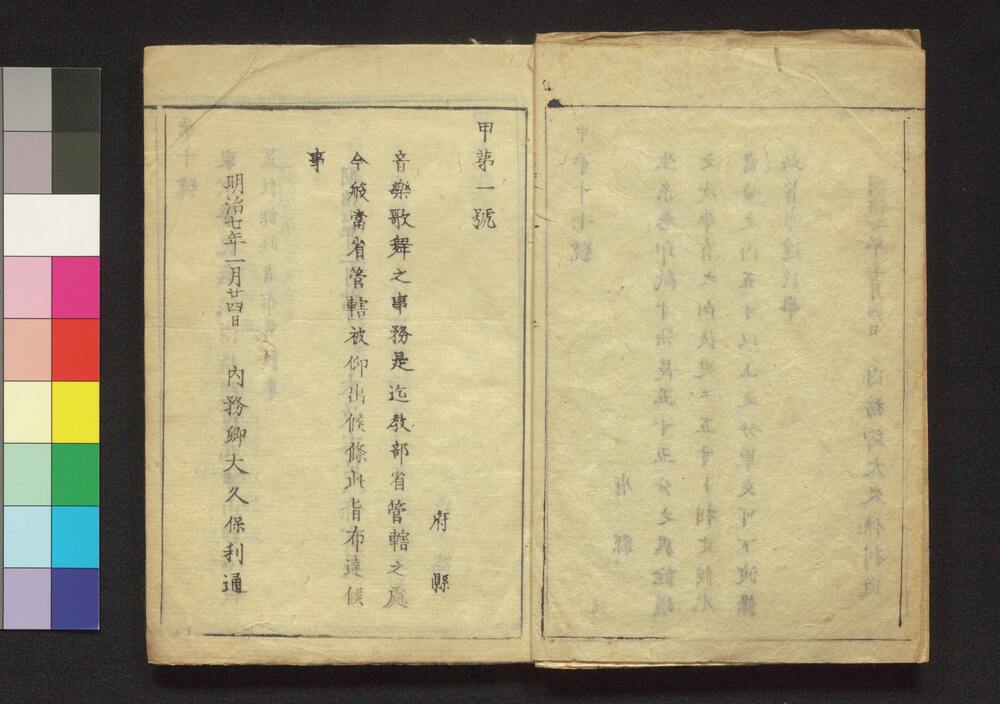 甲第一號
府縣
音樂歌舞之事務是迄教部省管轄之處
今般當省管轄被仰出候條此旨布達候
事
明治七年一月廿四日 內務卿大久保利通